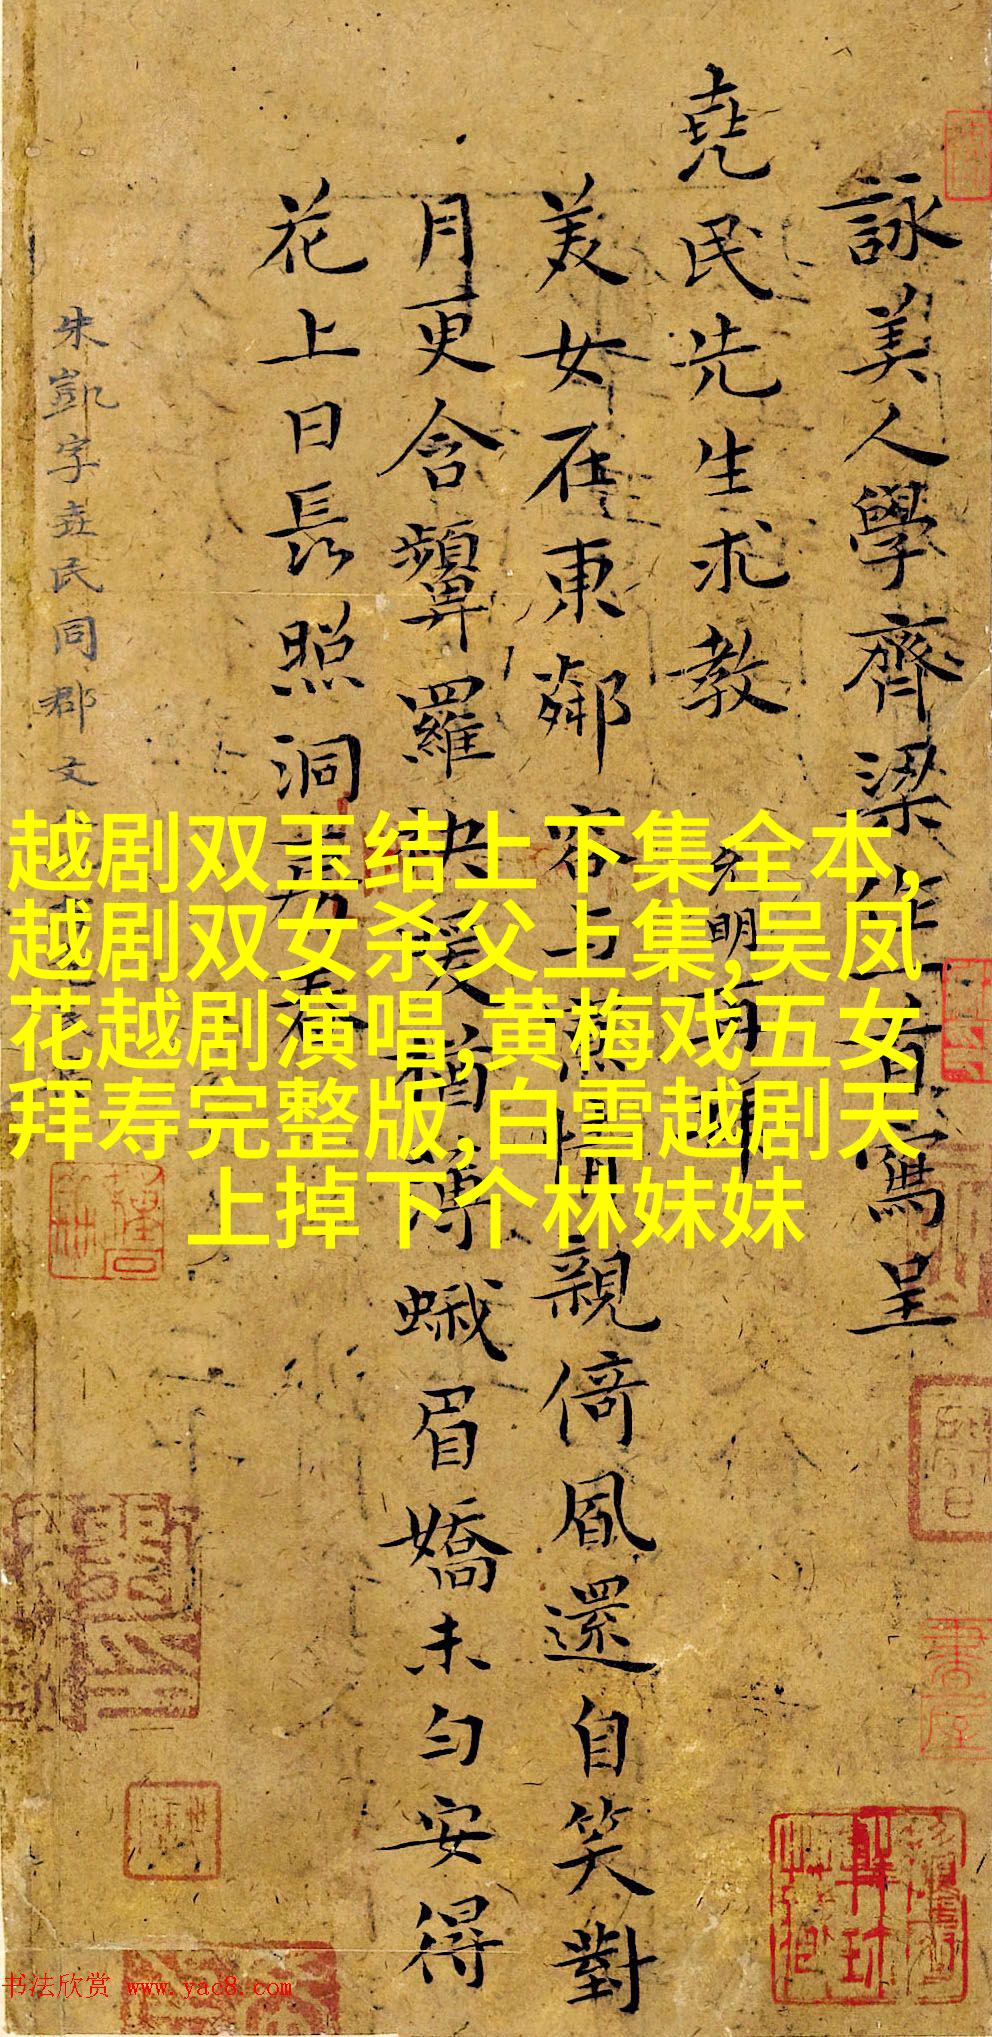 詠美人學齊梁作者寫呈
堯民先生求教
允明百拜
美女在東鄰容與燕情親倚風還自笑對
月更含顰羅袂暖猶薄蛾眉嬌未勻安得
花上日長照洞房春
朱凱字堯民同郡文
越剧双玉结上下集全本,
越剧双女杀父上集,吴凤
花越剧演唱,黄梅戏五女
拜寿完整版,白雪越剧天
上掉下个林妹妹
书法欣赏 www.yac8.com